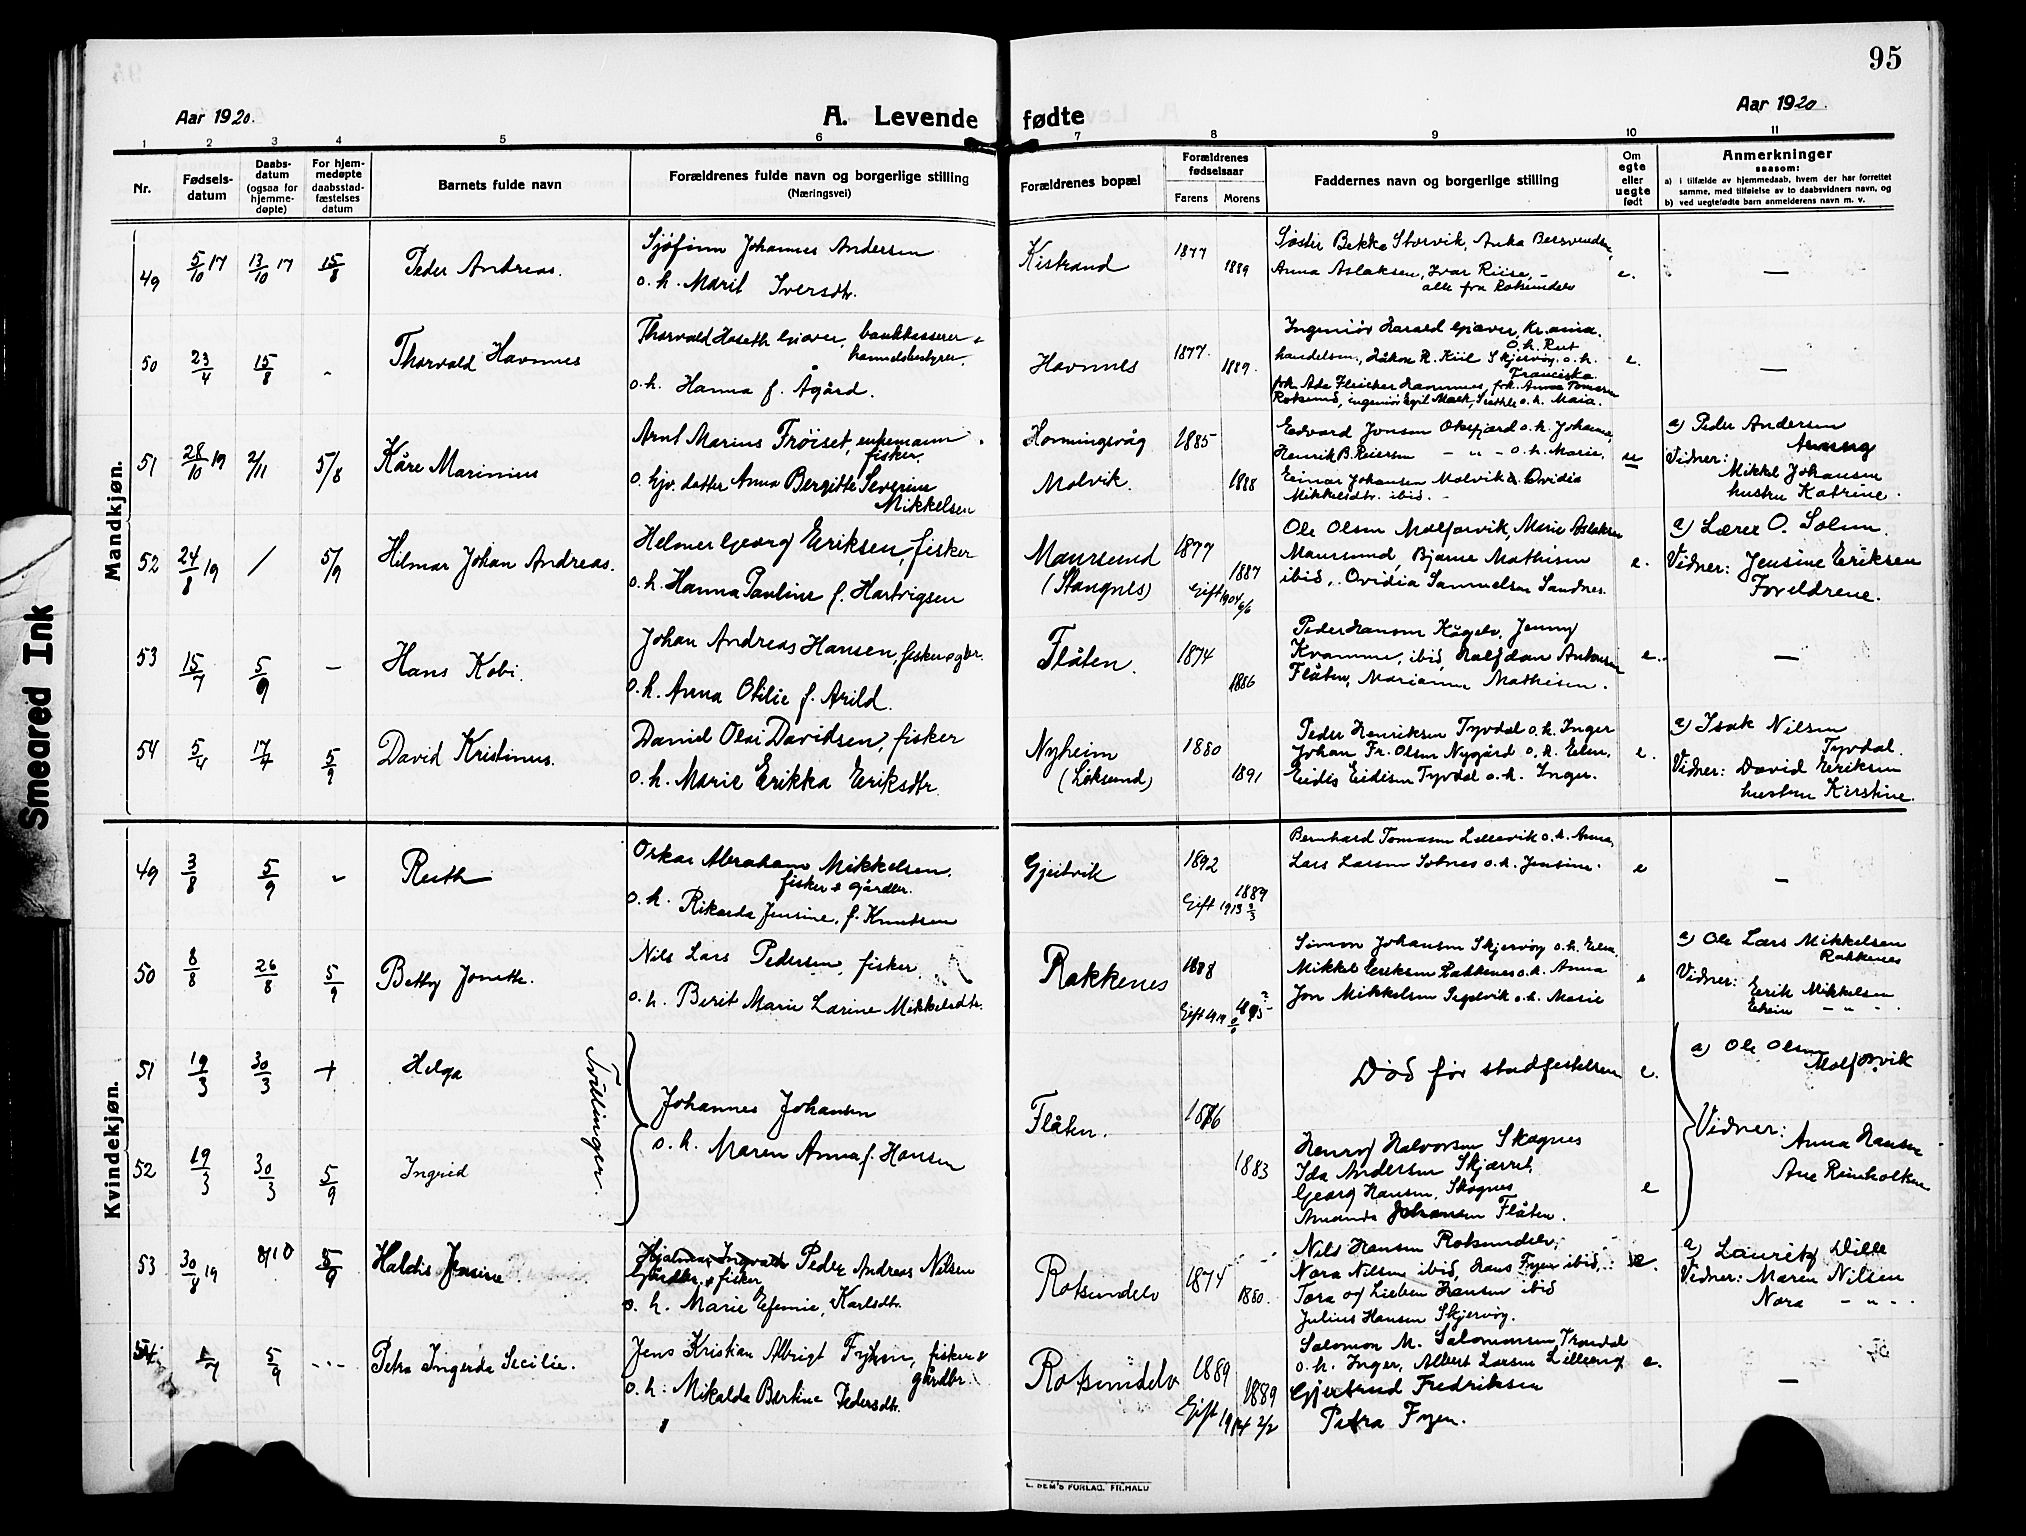 95
Aar 1920.
A. Levende fødte
Aar 1920.
1 2 3 4 5 6 7 8 9 10 11
Nr.
Fødsels-
datum
Daabs-
datum
(ogsaa for
hjemme-
døpte)
For hjem-
medøpte
daabsstad-
fæstelses
datum
Barnets fulde navn
Forældrenes fulde navn og borgerlige stilling
(Næringsvei)
Forældrenes bopæl
Forældrenes
fødselsaar
Farens Morens
Faddernes navn og borgerlige stilling
Om
egte
eller
uegte
født
Anmerkninger
saasom:
a) i tilfælde av hjemmedaab, hvem der har forrettet
samme, med tilføielse av to daabsvidners navn, og
b) ved uegtefødte barn anmelderens navn m. v.
Smeared Ink
Mandkjøn.
49 5/10 17 13/10 17 15/8 Peder Andreas.
Sjøfinn Johannes Andersen
o. h. Marit Iversdtr.
Kistrand 1877 1889
Søster Bekka Storvik, Anka
Anna Aslaksen, Ivar Riise, –
alle fra Rotsundelv
e. —
50 23/4 15/8 - Thorvald Havnnes
Thorvald Giæver, bankkasserer &
o. h. Hanna f. Ågård.
Havnnes 1877. 1889.
Ingeniør Harald Giæver, Kr.ania.
o. h. Rut
handelsm. Håkon R. Kiil Skjervøy. o. h.
Franciska
frk. Ada Fleischer Havnnes, frk. Anna
Rotsund, ingeniør Egil Mack, o. h. Maia.
e. —
51 28/10 19 2/11 5/8 Kåre Marinius
Arnt Marius Frøiset, enkemann,
fisker.
o. gjv. datter Anna Bergitte Severine
Mikkelsen
Honningsvåg 1885
Molvik. 1888
Edvard Jensen Oksfjord o. h. Johanne,
Henrik B. Reiersen – " – o. h. Marie,
Einar Johansen Molvik & Ovidia
Mikkelsdtr. ibid. –
u
a) Peder Andersen
Vidner:
Mikkel Johansen
hustru Katrine.
52 24/8 19 / 5/9 Hilmar Johan Andreas.
Helmer Georg Eriksen, fisker
o. h. Hanna Pauline f. Hartvigsen
Maursund 1877
(Stangnes) 1887
Gift 1904 6/6
Ole Olsen Malfarvik, Marie Aslaksen
Maursund, Bjarne Mathisen
ibid., Ovidia Samuelsen Sandnes.
e.
a) Lærer O. Solem.
Vidner: Jensine Eriksen
Foreldrene.
53 15/7 5/9 – Hans Kobi.
Johan Andreas Hansen, fisker & gbr.
o. h. Anna Otilie f. Arild.
Flåten. 1874 1886
Peder Hansen Kågelv, Jenny
Kvamme, ibid, Halfdan Antonsen
Flåten, Marianne Mathisen.
e. —
54 5/4 17/7 5/9 David Kristinus.
Daniel Olai Davidsen, fisker
o. h. Marie Erikka Eriksdtr.
Nyheim 1880
(Løksund) 1891
Peder Henriksen Tyvdal o. h. Inger
Johan Fr. Olsen Nygård o. h. Elen,
Eidis Eidisen Tyvdal o. h. Inger.
e.
a) Isak Nilsen
Tyvdal.
Vidner: David Eriksen
hustru Kirstine.
Kvindekjøn.
49 3/8 5/9 - Ruth
Oskar Abraham Mikkelsen.
fisker & gårdbr.
o. h. Rikarda Jensine, f. Knutsen
Gjeitvik 1892 1889
Gift 1913 2/3
Bernhard Tomasen Lillevik o. h. Anna,
Lars Larsen Solnes o. h. Jensine.
e –
50 8/8 26/8 5/9 Betty Jonette.
Nils Lars Pedersen, fisker
o. h. Berit Marie Larine Mikkelsdtr.
Rakkenes 1888 1895
Simon Johansen Skjervøy o. h. Elen,
Mikkel Eriksen Rakkenes o. h. Anna
Jon Mikkelsen Segelvik o. h. Marie
e
a) Ole Lars Mikkelsen
Rakkenes
Vidner: Erik Mikkelsen
– " – .
51 19/3 30/3 + Helga
Tvillinger.
Død før stadfestelsen e.
a) Ole Olsen
Malfarvik
Johannes Johansen
o. h. Maren Anna f. Hansen
Flåten. 1876 1883
52 19/3 30/3 5/9 Ingrid
Henry Halvorsen Skognes
Ida Andersen Skjærret,
Georg Hansen, Skognes
Amanda Johansen Flåten.
e
Vidner:
Anna Hansen
Ane Reinholtsen
53 30/8 19 8/10 5/9 Haldis Jensine
Hjalmar Ingvald Peder Andreas Nilsen
Gårdbr. & fisker
o. h. Marie Efenie, Karlsdtr.
Rotsundelv 1874 1880.
Nils Hansen Rotsundelv,
Nora Nilsen ibid, Hans Fyen ibid,
Tora og Lieben Hansen ibid
Julius Hansen Skjervøy.
e.
a) Lauritz Dille
Vidner: Maren Nilsen
Nora – " – .
54 1/7 5/9 ... Petra Ingerda Secilie.
Jens Kristian Albrigt Fyhn, fisker &
gårdbr.
o. h: Mikalda Bertine Pedersdtr.
Rotsundelv 1889 1889
Gift 1914 2/2
Salomon M. Salomonsen, Trondal
o. h. Inger, Albert Larsen Lilleeng
Gjertrud Fredriksen
Petra Fyen.
e. —
E. SEM'S FORLAG. FR.HALD